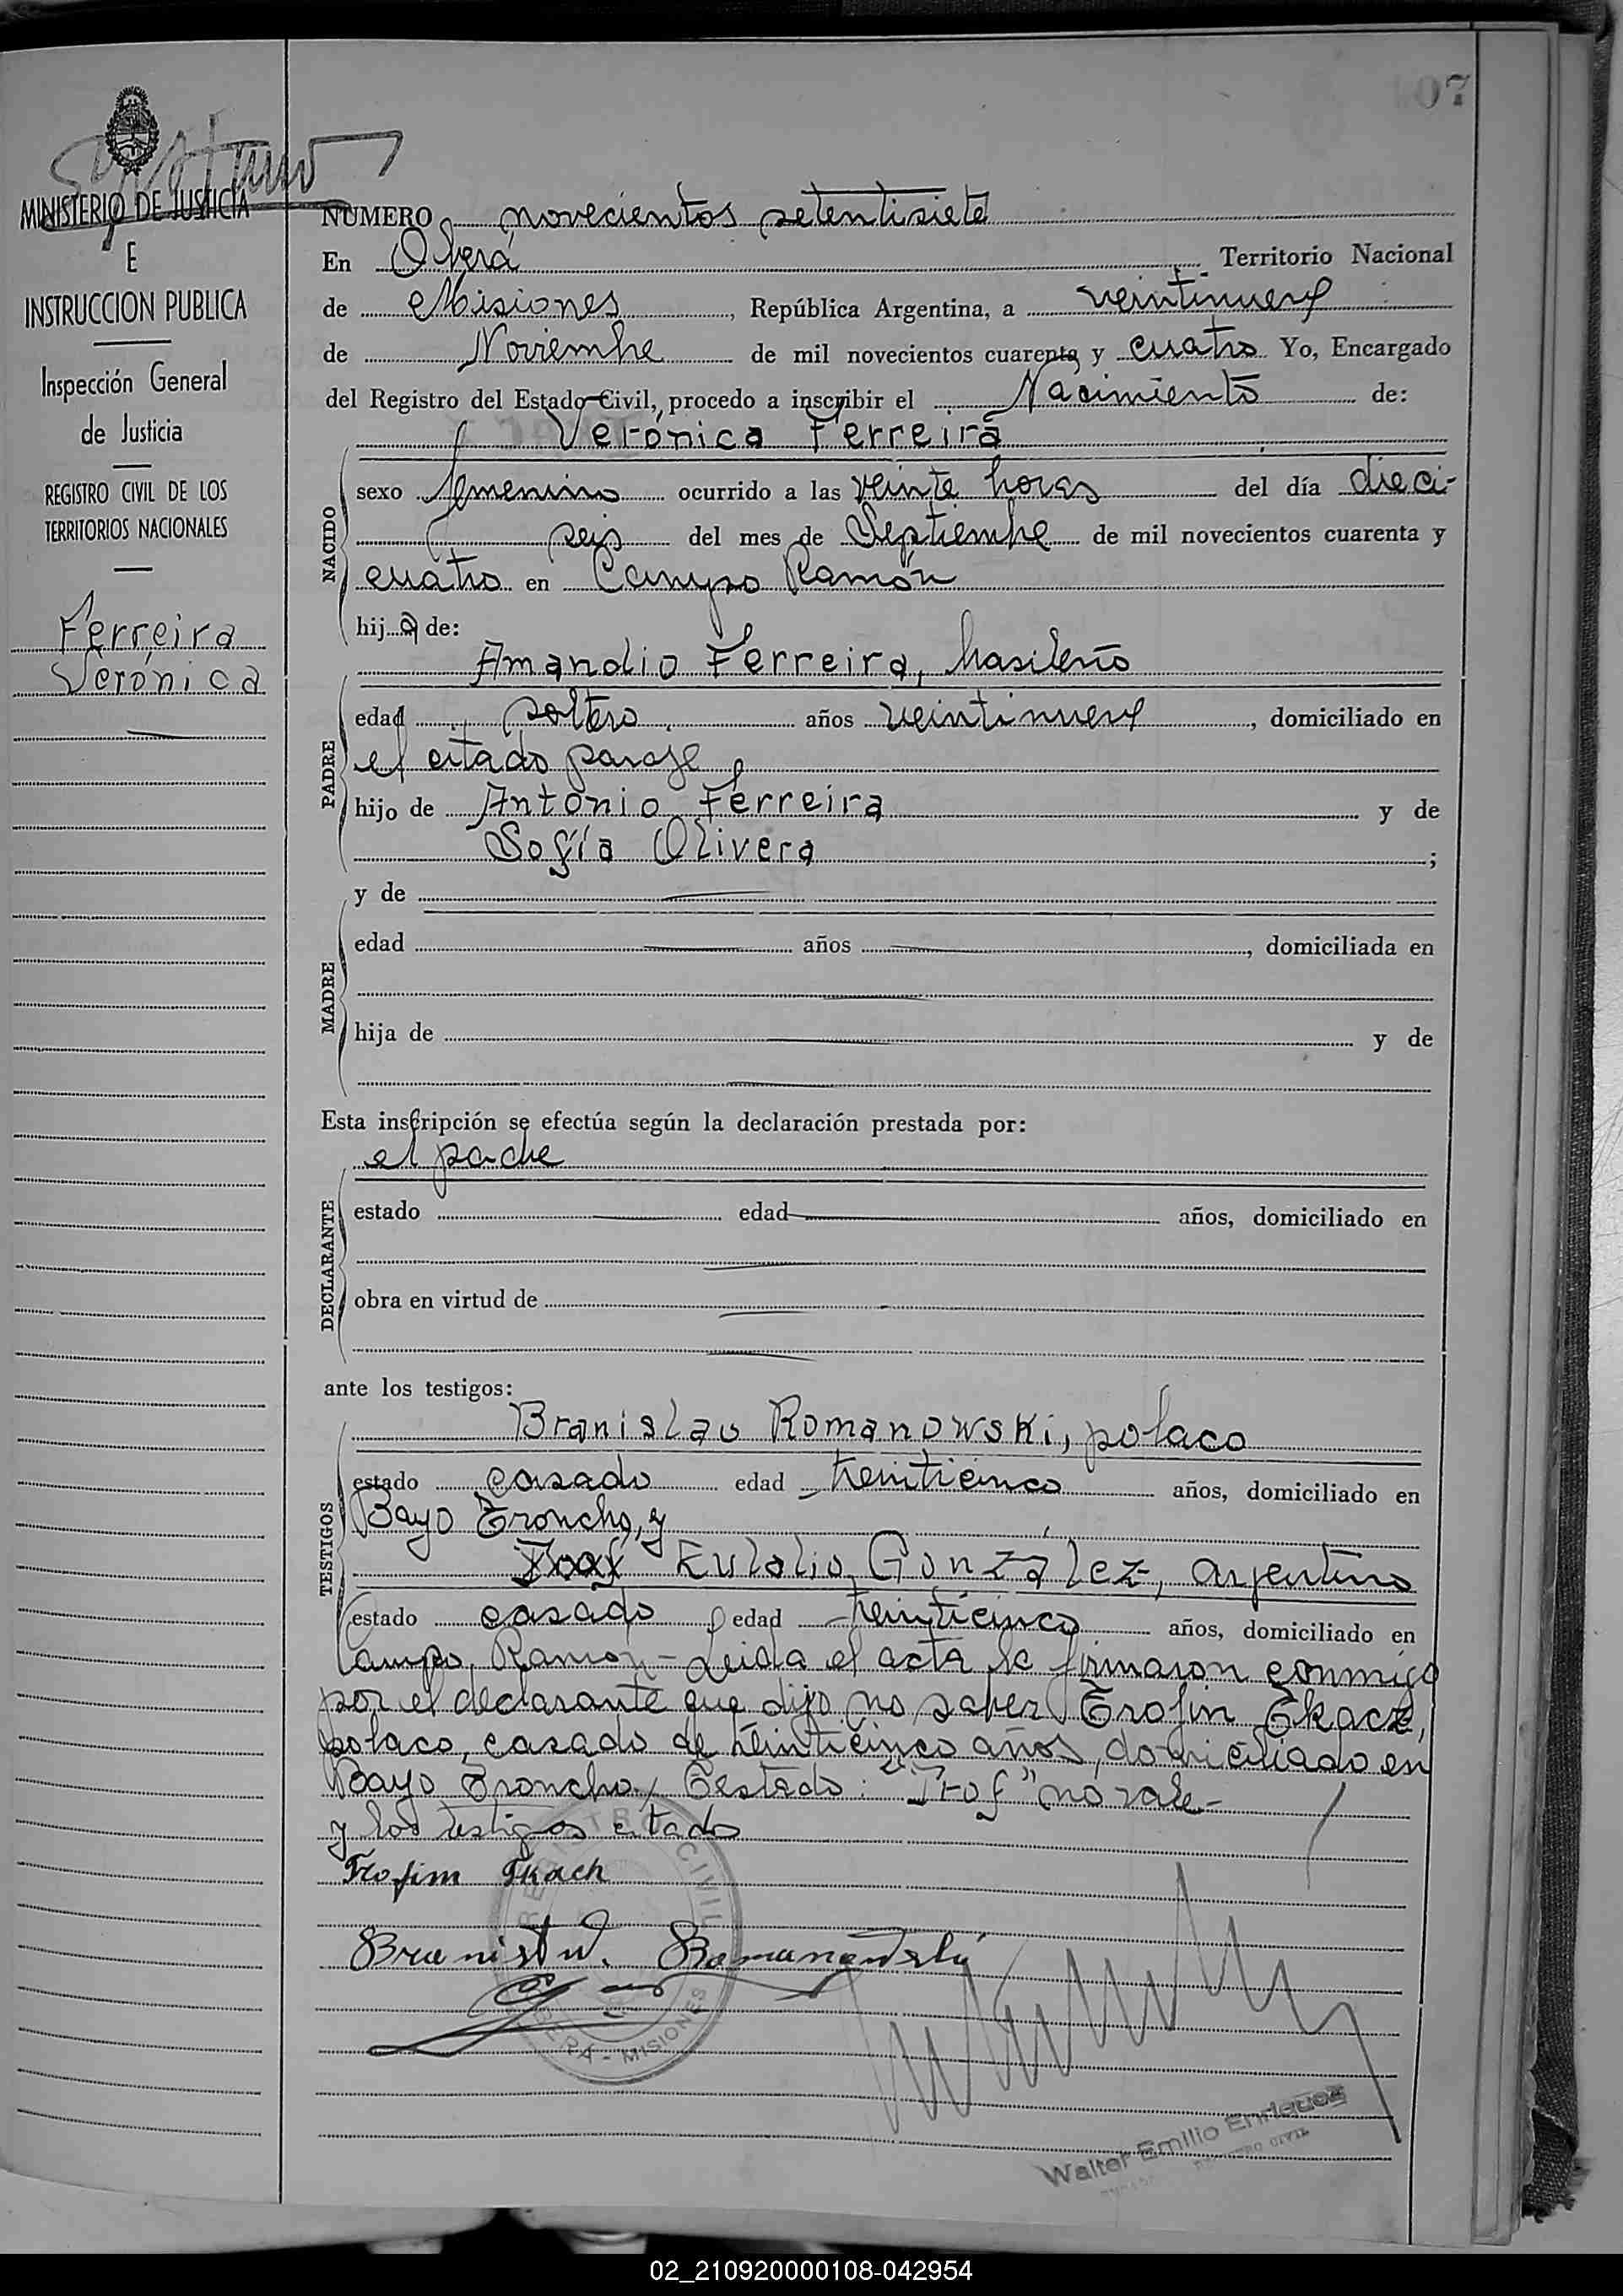 07
MINISTERIO DE JUSTICIA
E
INSTRUCCION PUBLICA
Inspección General
de Justicia
REGISTRO CIVIL DE LOS
TERRITORIOS NACIONALES
Ferreira
Verónica
NUMERO novecientos setentisiete
En Oberá Territorio Nacional
de Misiones, República Argentina, a veintinueve
de Noviembre de mil novecientos cuarenta y cuatro Yo, Encargado
del Registro del Estado Civil, procedo a inscribir el Nacimiento de:
Verónica Ferreira
NACIDO
sexo femenino ocurrido a las veinte horas del día dieci-
seis del mes de Septiembre de mil novecientos cuarenta y
cuatro en Campo Ramón
hij a de:
Amandio Ferreira, brasileño
PADRE
edad soltero años veintinueve, domiciliado en
el citado paraje
hijo de Antonio Ferreira y de
Sofía Olivera ;
MADRE
y de
edad años , domiciliada en
hija de y de
Esta inscripción se efectúa según la declaración prestada por:
el padre
DECLARANTE
estado edad años, domiciliado en
obra en virtud de
ante los testigos:
TESTIGOS
Branislao Romanowski, polaco
estado casado edad treinticinco años, domiciliado en
Bayo Troncho, y
Eulalio González, argentino
estado casado edad treinticinco años, domiciliado en
Campo Ramón - Leida el acta la firmaron conmigo
por el declarante que dijo no saber Trofin Tkacz,
polaco, casado de treinticinco años, domiciliado en
Bayo Troncho, Testado: "Trof" no vale-
y los testigos citados
Trofim Tkach
Romanowski
REGISTRO CIVIL
OBERA - MISIONES
Walter Emilio Enriquez
REGISTRO CIVIL
02_210920000108-042954